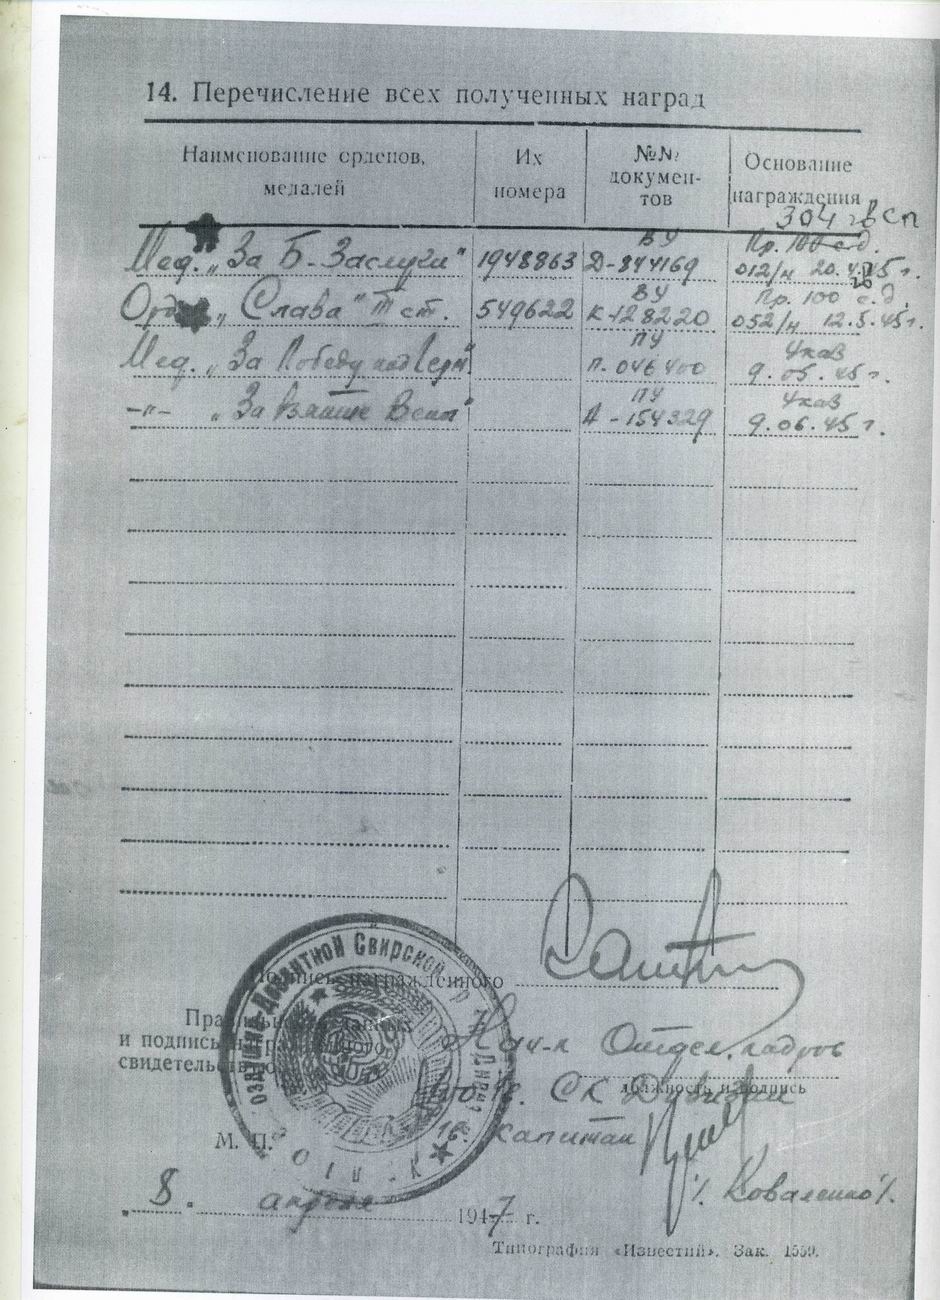 14. Перечисление всех полученных наград
Наименование орденов, медалей
Их номера
№№ документов
Основание награждения
304 гв сп
Мед. „За Б-Заслуги" 1948863 ВУ Д-844169 Пр. 100 с.д. 012/н 20.4.45 г.
Орд. „Слава" III ст. 549622 ВУ К-128220 Пр. 100 с.д. 052/н 12.5.45 г.
Мед. „За Победу над Герм" ПУ П. 046400 Указ 9.05.45 г.
-"- „За взятие Вены" ПУ А-154329 Указ 9.06.45 г.
Подпись награжденного
Правильность данных
и подпись награжденного
свидетельствую
Нач-к Отдел. кадров
должность и подпись
СК Дивизии
гв. капитан
/. Коваленко /.
М. П.
„8" апреля 1947 г.
Знаменной Свирской
Типография «Известий». Зак. 1550.